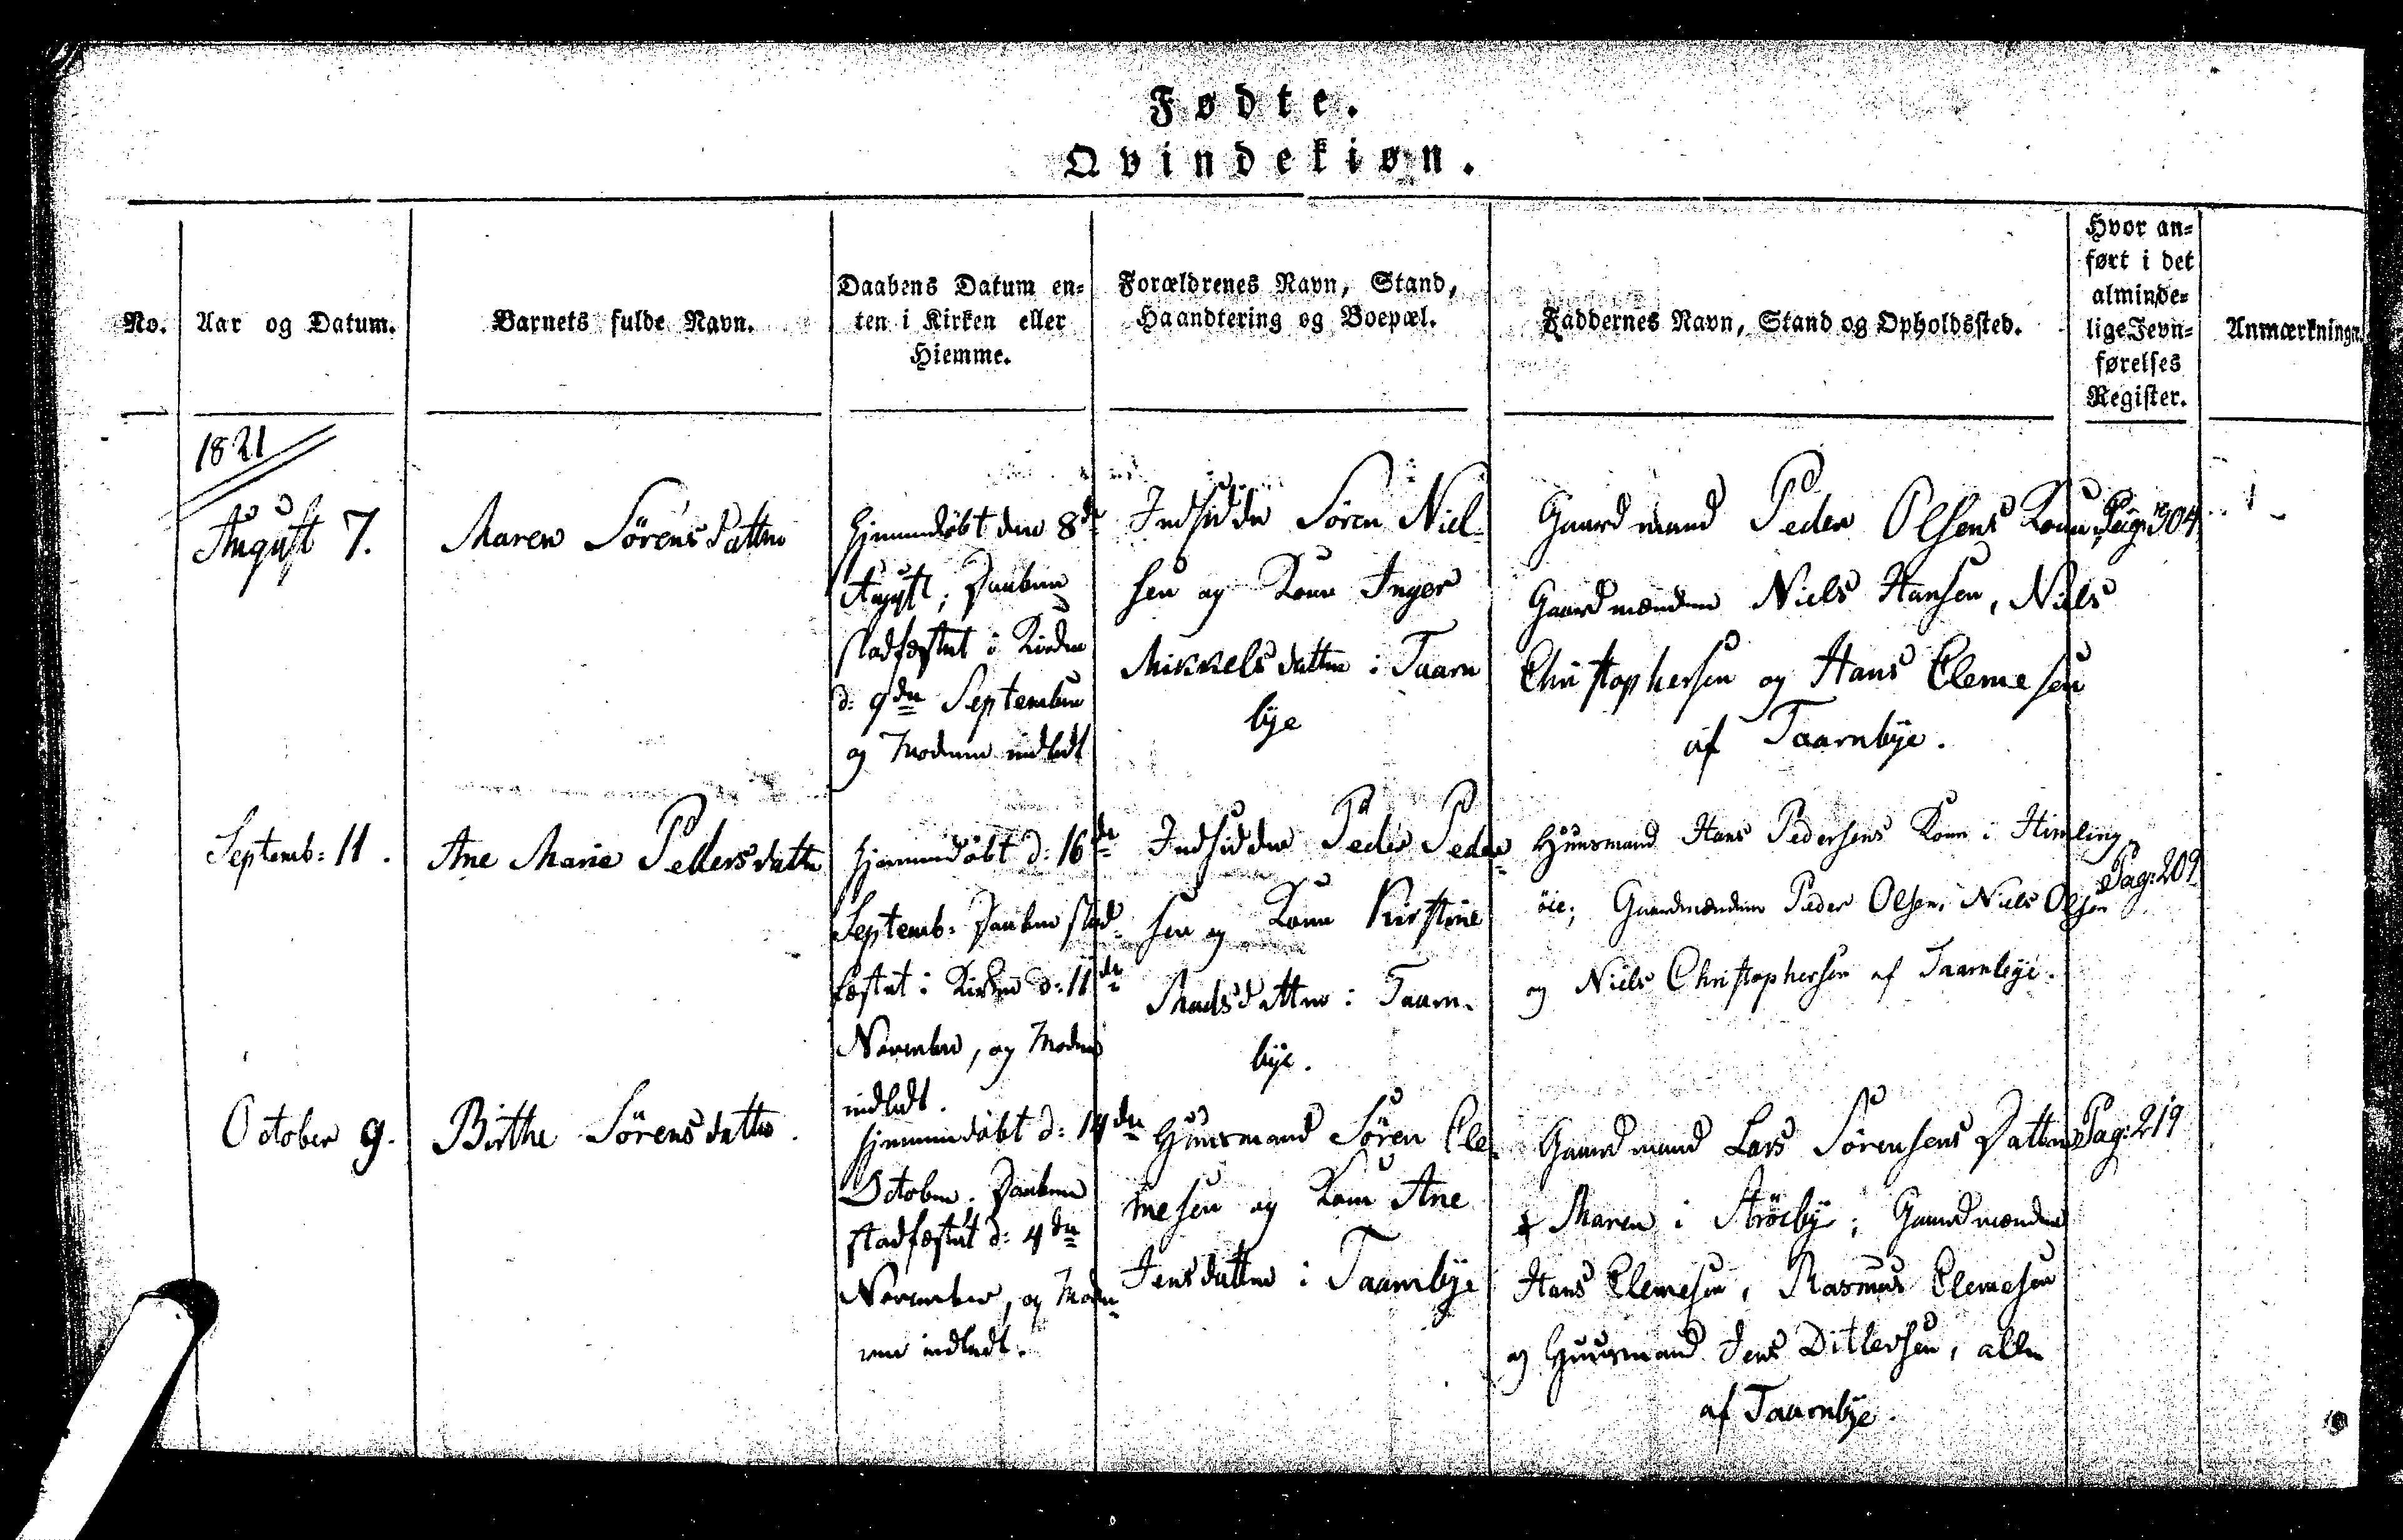 Fødte.
Qvindekiøn.
No.
Aar og Datum.
Barnets fulde Navn.
Daabens Datum en-
ten i Kirken eller
Hiemme.
Forældrenes Navn, Stand,
Haandtering og Boepæl.
Faddernes Navn, Stand og Opholdssted.
Hvor an-
ført i det
alminde-
lige Jevn-
førelses
Register.
Anmærkninger.
1821
August 7.
Maren Sörens Datter
Hjemmedöbt den 8de
August; Daaben
stadfæstet i Kirken
d: 9den September
og Moderen indledt
Indsidder Sören Niel-
sen og Kone Inger
Mikkelsdatter i Taarn
bÿe
Gaardmand Peder Olsens Kone,
Gaardmændene Niels Hansen, Niels
Christophersen og Hans Clemesen
af Taarnbÿe.
Pag: 204
Septemb: 11.
Ane Marie Pedersdatter
Hjemmedöbt d: 16de
Septemb: Daaben stad-
fæstet i Kirken d: 11te
November, og Moderen
indledt.
Indsidder Peder Peder-
sen og Kone Kirstine
Madsdatter i Taarn-
bÿe.
Huusmand Hans Pedersens Kone i Himling
öie; Gaardmændene Peder Olsen, Niels Olsen
og Niels Christophersen af Taarnbÿe.
Pag: 209
October 9.
Birthe Sörensdatter.
Hjemmedöbt d: 14den
October. Daaben
stadfæstet d: 4den
November, og Mode-
ren indledt.
Huusmand Sören Cle-
mesen og Kone Ane
Jensdatter i Taarnbÿe
Gaardmand Lars Sörensens Datter
Maren i Ströebÿ; Gaardmændene
Hans Clemesen, Rasmus Clemesen
og Huusmand Jens Ditlevsen, alle
af Taarnbÿe.
Pag: 219